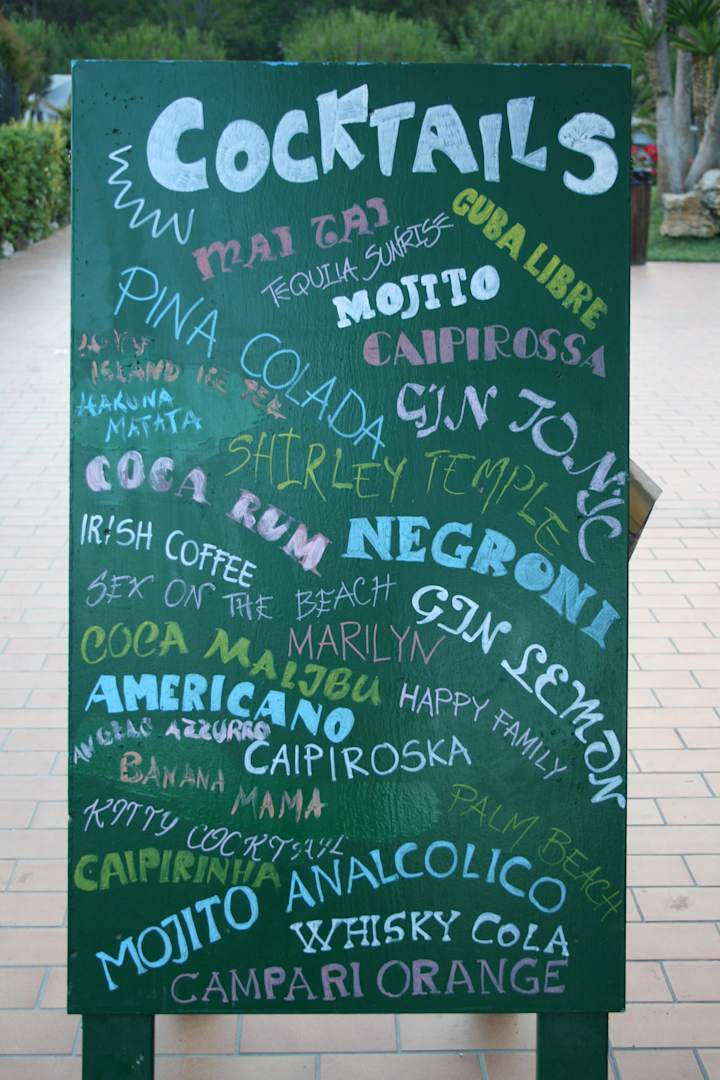 COCKTAILS
MAI TAI
CUBA LIBRE
TEQUILA SUNRISE
MOJITO
PINA COLADA
CAIPIROSSA
ISLAND ICE TEA
HAKUNA
MATATA
GIN TONIC
SHIRLEY TEMPLE
COCA RUM
IRISH COFFEE
NEGRONI
SEX ON THE BEACH
GIN LEMON
COCA MALIBU
MARILYN
AMERICANO
HAPPY FAMILY
ANGELO AZZURRO
CAIPIROSKA
BANANA
MAMA
KITTY COCKTAIL
PALM BEACH
CAIPIRINHA
MOJITO ANALCOLICO
WHISKY COLA
CAMPARI ORANGE